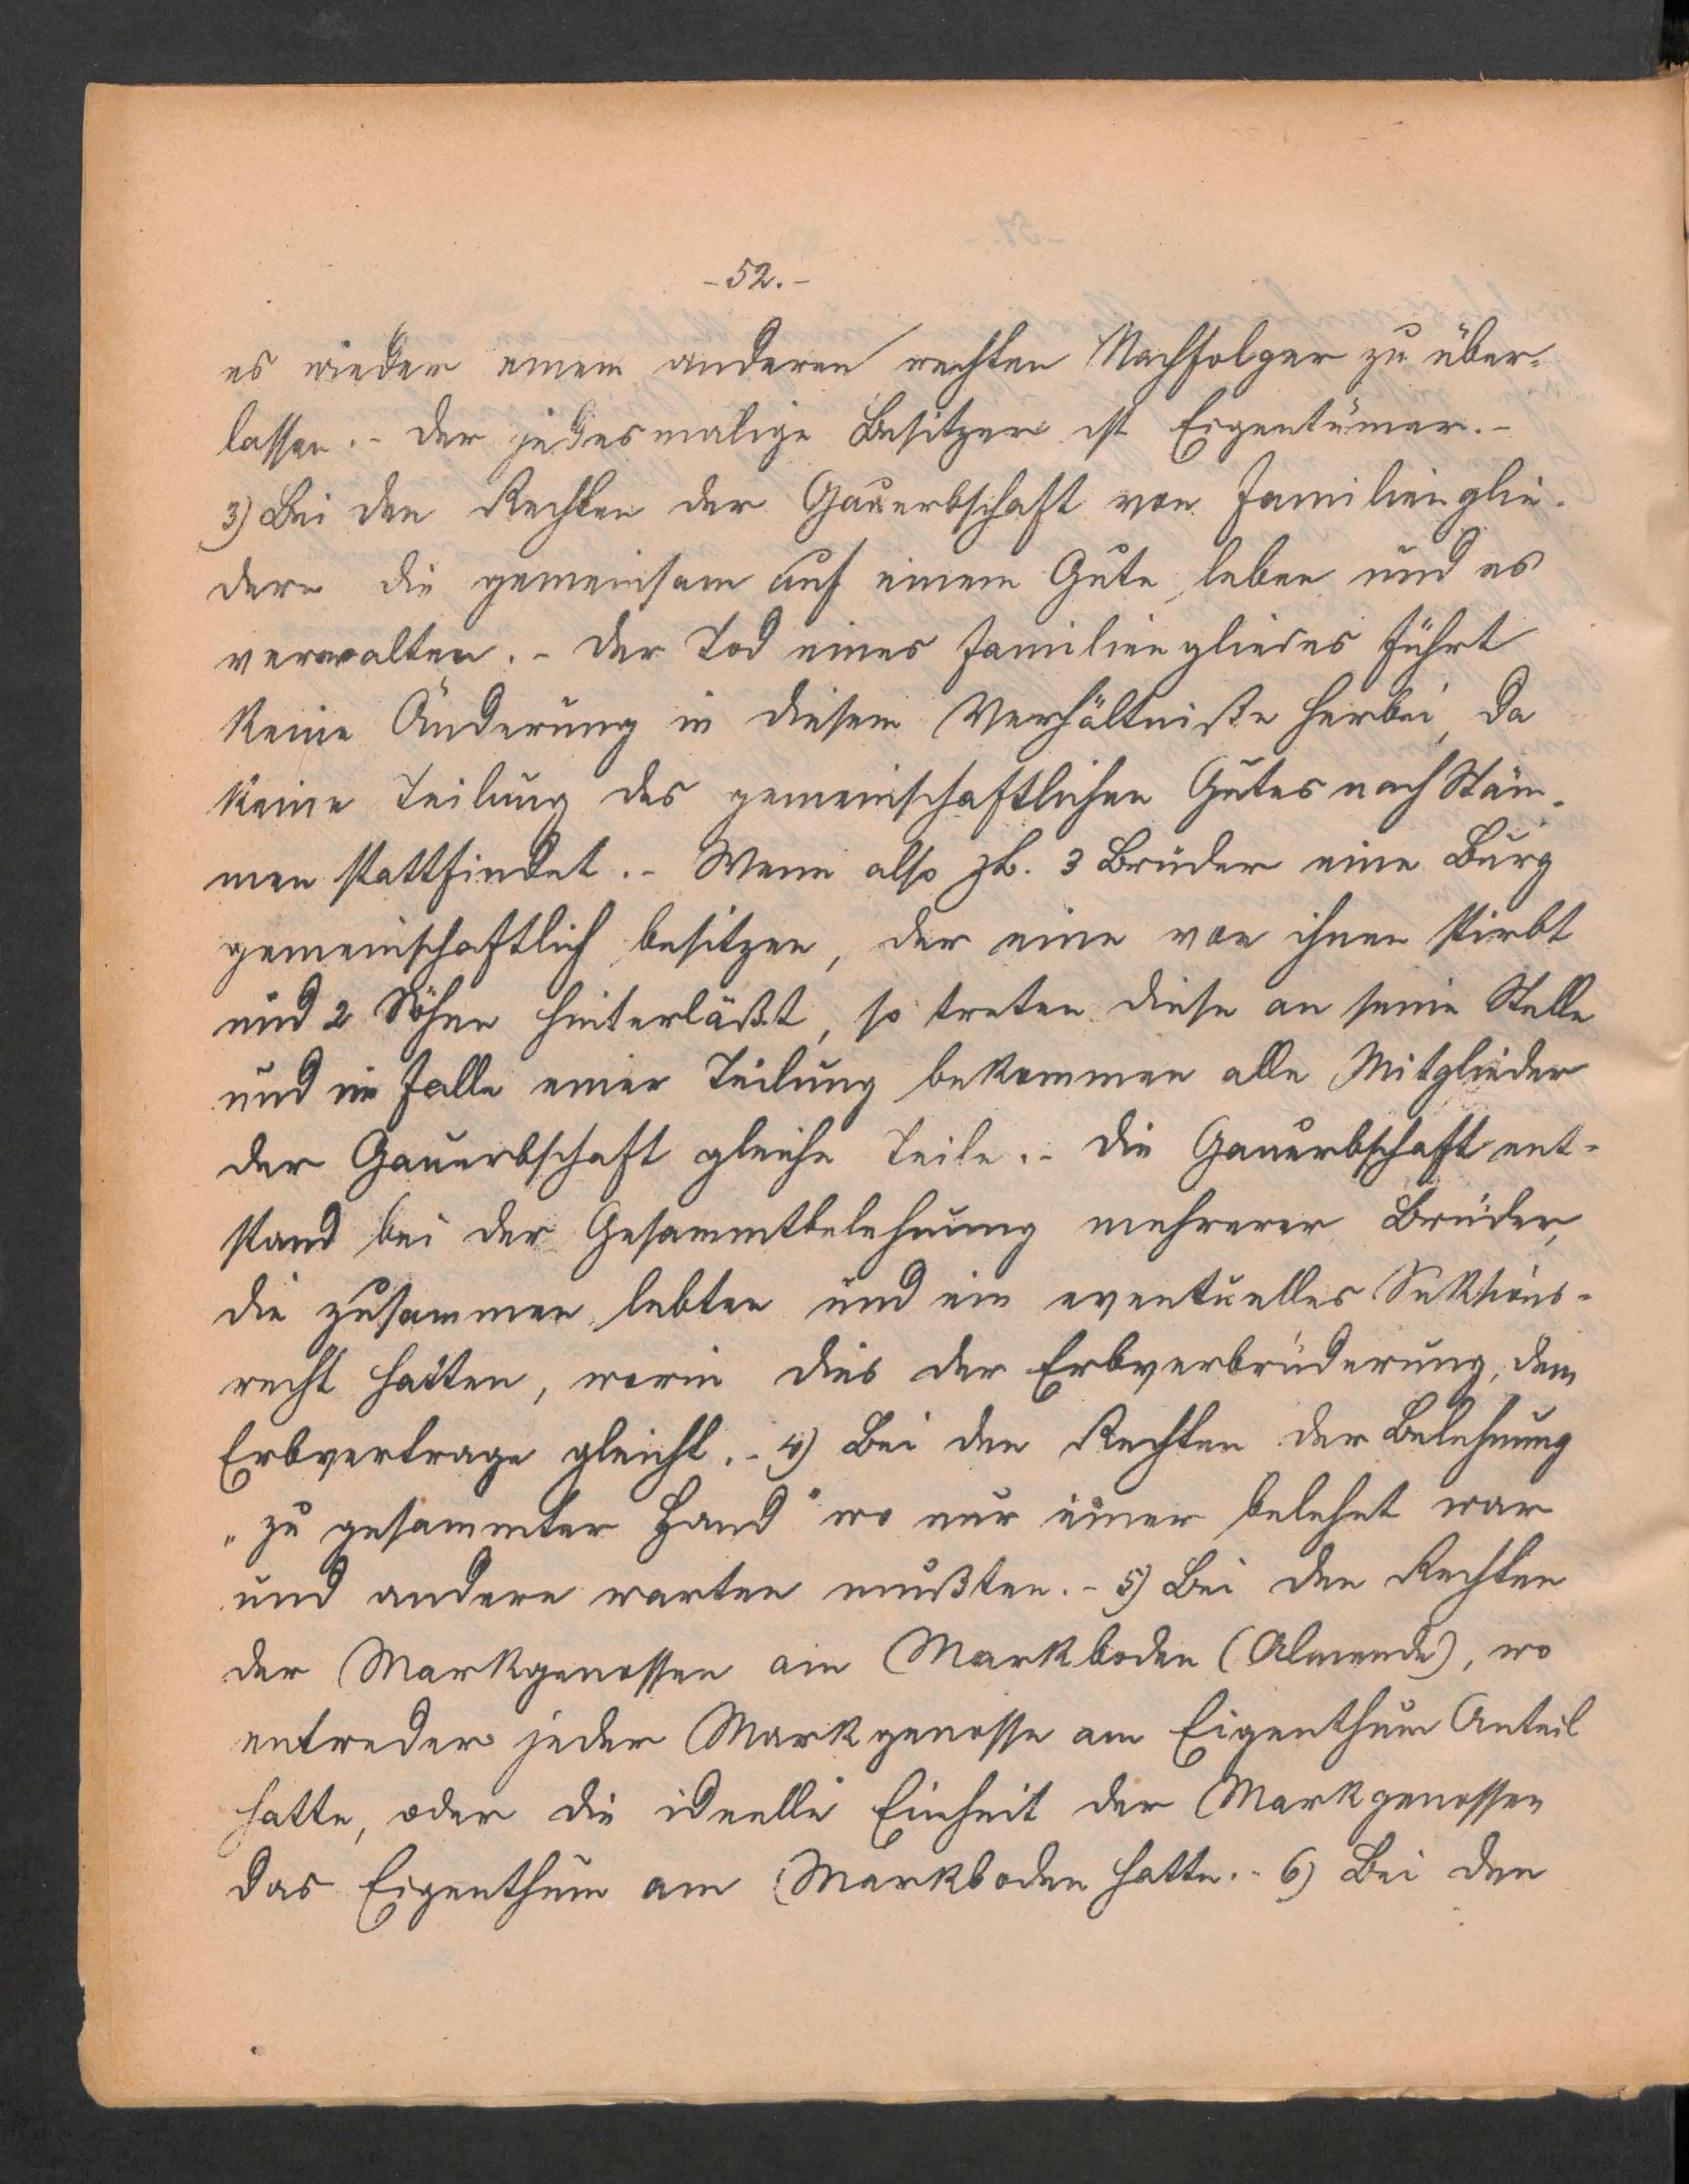 -52.-
es wieder einem anderen rechten Nachfolger zu über-
lassen.- Der jedesmalige Besitzer ist Eigentümer.-
3) Bei den Rechten der Ganerbschaft von Familienglie-
dern die gemeinsam auf einem Gute leben und es
verwalten.- Der Tod eines Familiengliedes führt
keine Änderung in diesem Verhältniße herbei, da
keine Teilung des gemeinschaftlichen Gutes nach Stäm-
men stattfindet.- Wenn also zb. 3 Brüder eine Burg
gemeinschaftlich besitzen, der eine von ihnen stirbt
und 2 Söhne hinterläßt, so treten diese an seine Stelle
und im Falle einer Teilung bekommen alle Mitglieder
der Ganerbschaft gleiche Teile.- Die Ganerbschaft ent-
stand bei der Gesammtbelehnung mehrerer Brüder,
die zusammen lebten und ein eventuelles
recht hatten, worin dies der Erbverbrüderung, dem
Erbvertrage gleicht.- 4) Bei den Rechten der Belehnung
„zu gesammter Hand" wo nur einer belehnt war
und andere warten mußten.- 5) Bei den Rechten
der Markgenossen am Markboden (Almende), wo
entweder jeder Markgenosse am Eigenthum Anteil
hatte, oder die ideelle Einheit der Markgenossen
das Eigenthum am Markboden hatte.- 6) Bei den